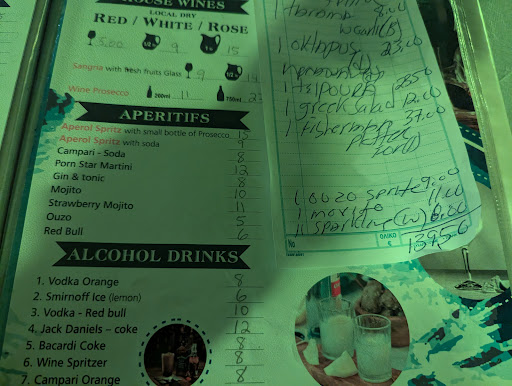 HOUSE WINES
LOCAL DRY
RED / WHITE / ROSE
5,00 1/2 L 9 1 L 15
Sangria with fresh fruits Glass 9
Wine Prosecco 200ml 11 750ml 23
APERITIFS
Aperol Spritz with small bottle of Prosecco 15
Aperol Spritz with soda 9
Campari - Soda 8
Porn Star Martini 12
Gin & tonic 8
Mojito 10
Strawberry Mojito 11
Ouzo 5
Red Bull 6
ALCOHOL DRINKS
1. Vodka Orange 8
2. Smirnoff Ice (lemon) 6
3. Vodka - Red bull 10
4. Jack Daniels – coke 12
5. Bacardi Coke 8
6. Wine Spritzer 8
7. Campari Orange 8
8,00
1 oktapus 23,00
1 greek salad 12.00
1 fisherman 37,00
1 ouzo sprite 9,00
1 mojito 11,00
1 sparkling (W) 6.00
No
139,50